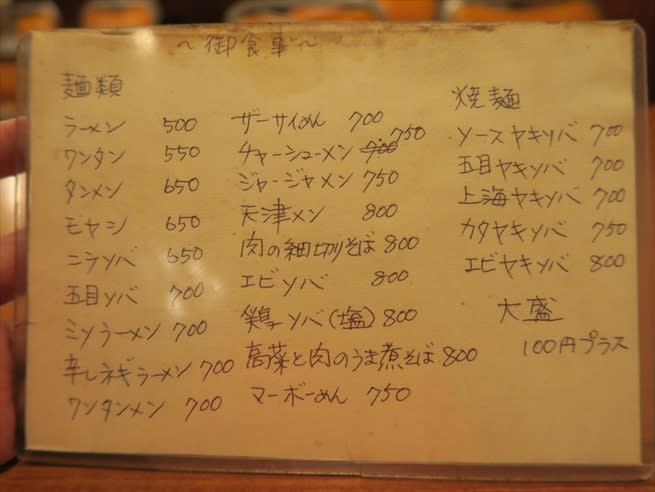 ～御食事～
麺類
ラーメン 500
ワンタン 550
タンメン 650
モヤシ 650
ニラソバ 650
五目ソバ 700
ミソラーメン 700
辛しネギラーメン 700
ワンタンメン 700
ザーサイめん 700
チャーシューメン 700 750
ジャージャメン 750
天津メン 800
肉の細切りそば 800
エビソバ 800
鶏ソバ(塩) 800
高菜と肉のうま煮そば 800
マーボーめん 750
焼麺
ソースヤキソバ 700
五目ヤキソバ 700
上海ヤキソバ 700
カタヤキソバ 750
エビヤキソバ 800
大盛
100円プラス